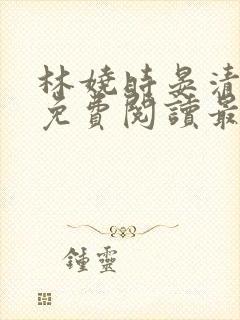 林嬈時晏清
免費閱讀最
鍾靈